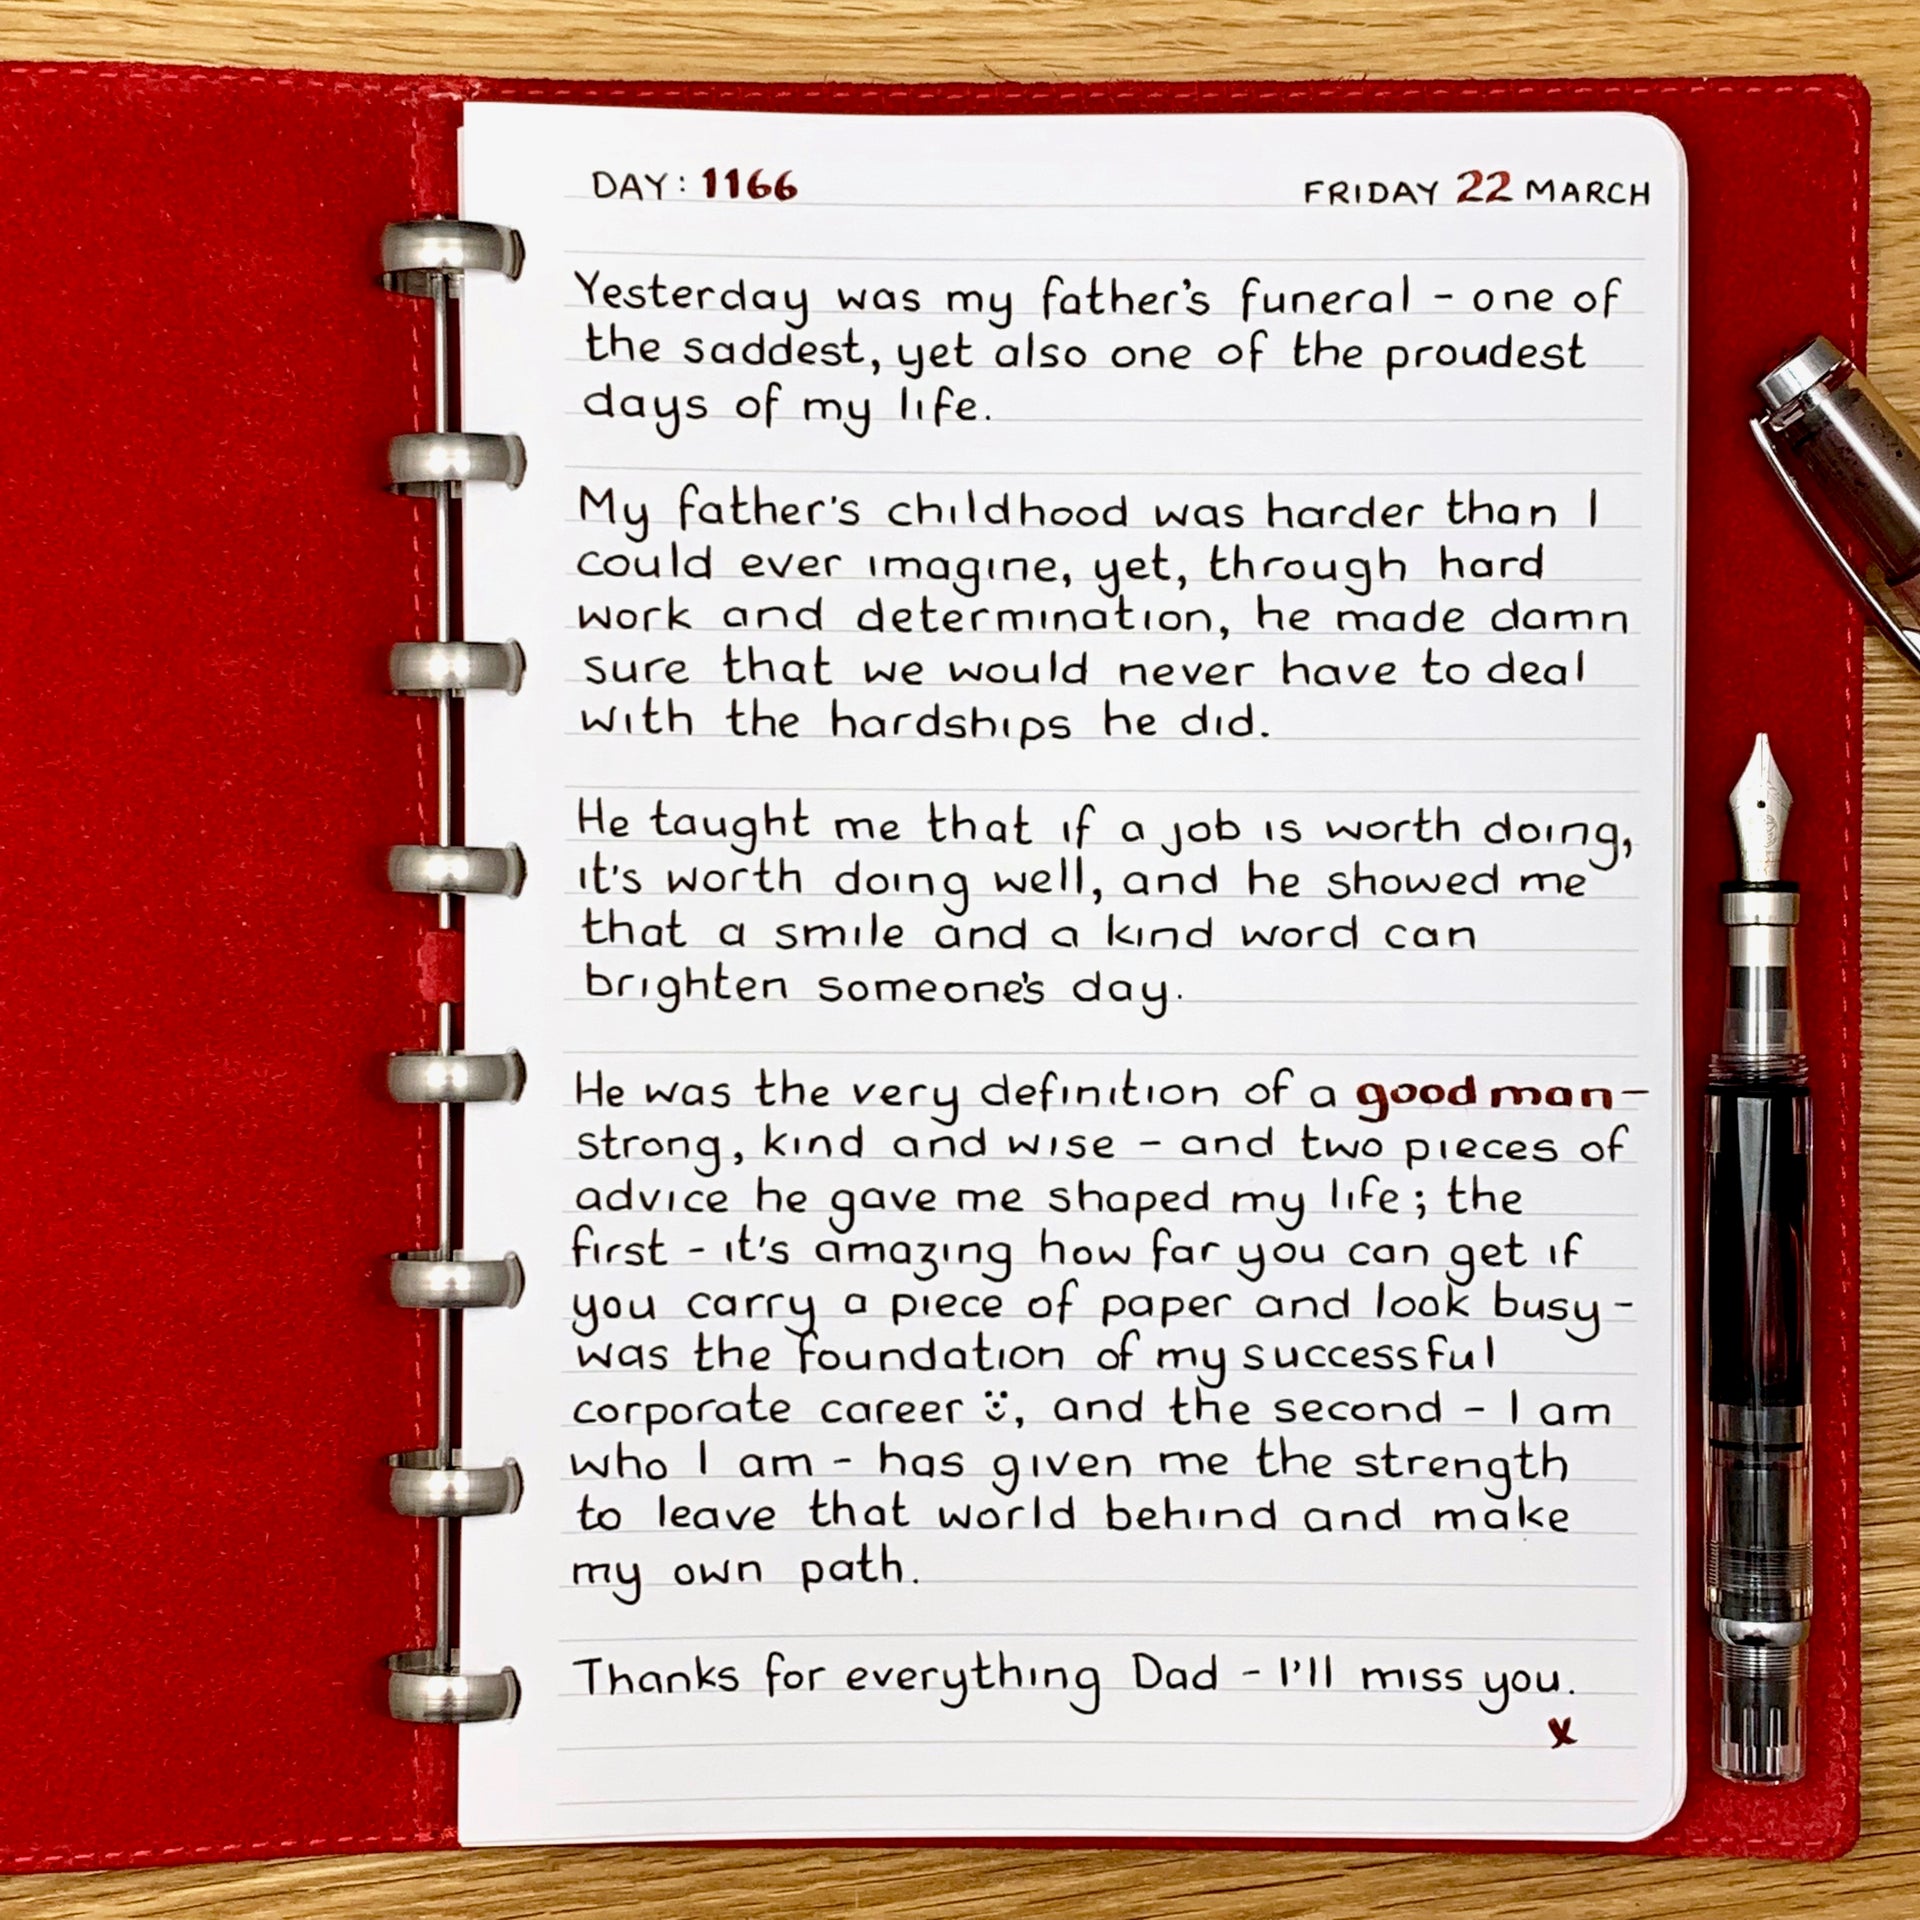 DAY: 1166
FRIDAY 22 MARCH
Yesterday was my father's funeral - one of
the saddest, yet also one of the proudest
days of my life.
My father's childhood was harder than I
could ever imagine, yet, through hard
work and determination, he made damn
sure that we would never have to deal
with the hardships he did.
He taught me that if a job is worth doing,
it's worth doing well, and he showed me
that a smile and a kind word can
brighten someone's day.
He was the very definition of a good man -
strong, kind and wise - and two pieces of
advice he gave me shaped my life; the
first - it's amazing how far you can get if
you carry a piece of paper and look busy -
was the foundation of my successful
corporate career :), and the second - I am
who I am - has given me the strength
to leave that world behind and make
my own path.
Thanks for everything Dad - I'll miss you.
x